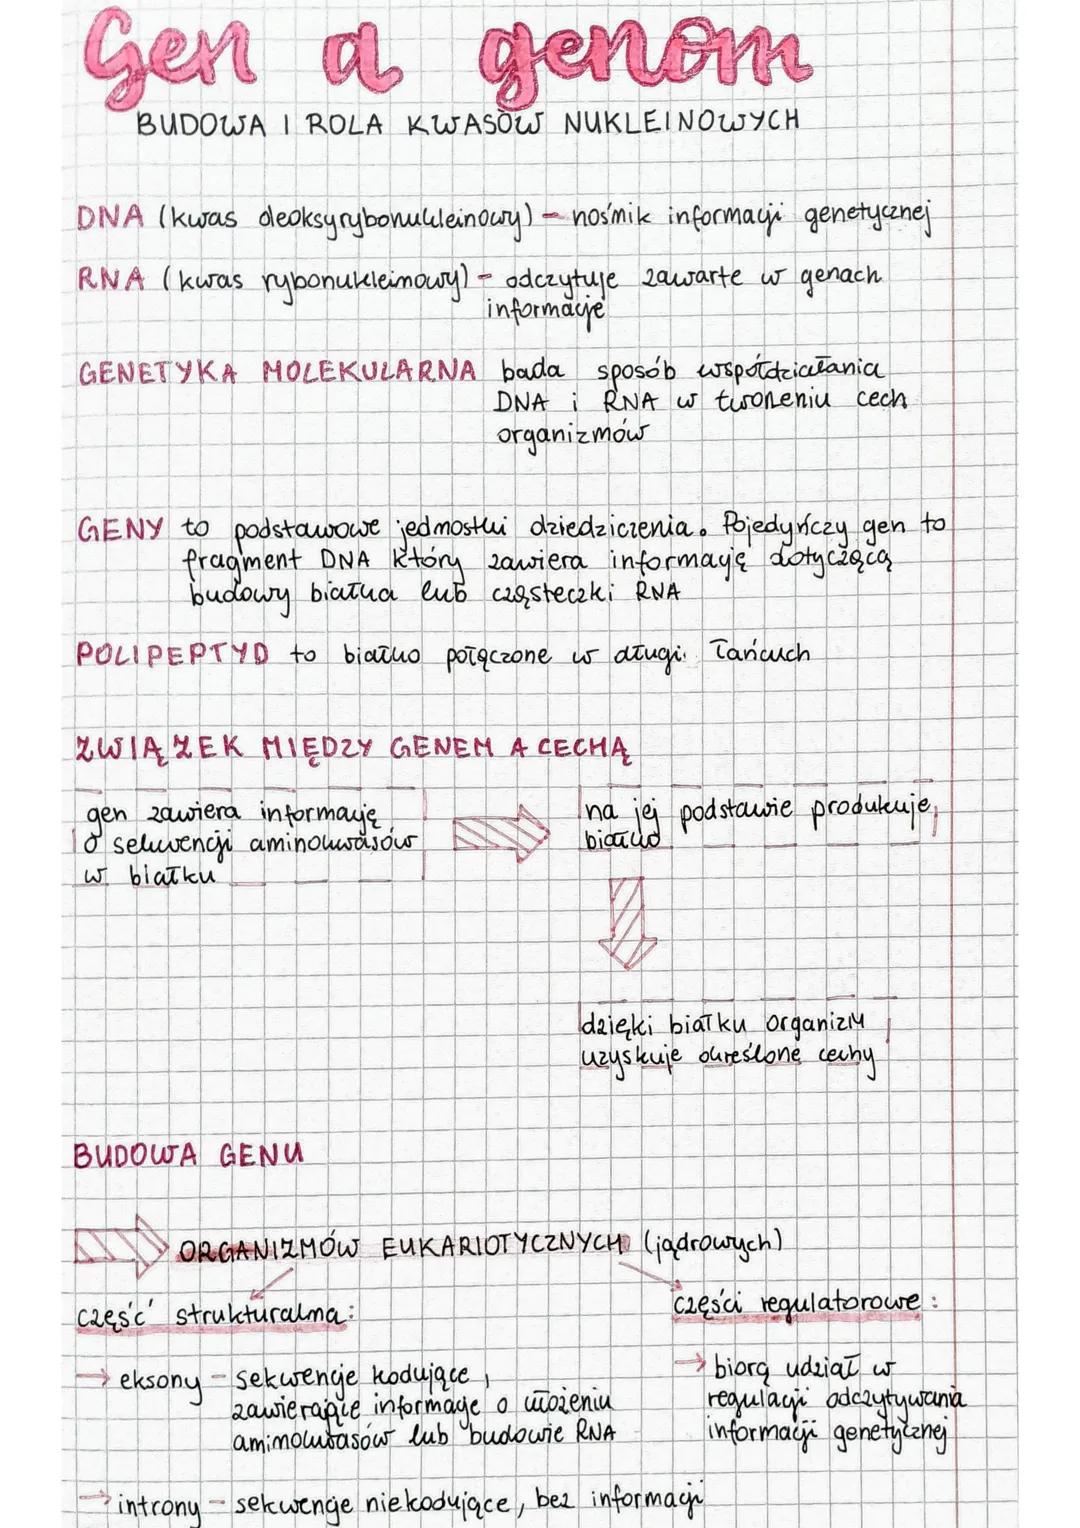 Gen a genom
BUDOWA I ROLA KWASÓW NUKLEINOWYCH
DNA (kwas deoksyrybonukleinowy) - nośnik informacji genetycznej
RNA (kwas rybonukleinowy) - odczytuje zawarte w genach
informacje
GENETYKA MOLEKULARNA bada sposób współdziałania
DNA i RNA w tworzeniu cech
organizmów
GENY to podstawowe jednostki dziedziczenia. Pojedyńczy gen to
fragment DNA który zawiera informację dotyczącą
budowy białka lub cząsteczki RNA
POLIPEPTYD to białko połączone w długi łańcuch
ZWIĄZEK MIĘDZY GENEM A CECHĄ
gen zawiera informację
o sekwencji aminokwasów
w białku
na jej podstawie produkuje
białko
dzięki białku organizm
uzyskuje określone cechy
BUDOWA GENU
ORGANIZMÓW EUKARIOTYCZNYCH (jądrowych)
część strukturalna:
→ eksony - sekwencje kodujące,
zawierające informacje o ułożeniu
aminokwasów lub budowie RNA
→ introny - sekwencje niekodujące, bez informacji
części regulatorowe:
→ biorą udział w
regulacji odczytywania
informacji genetycznej